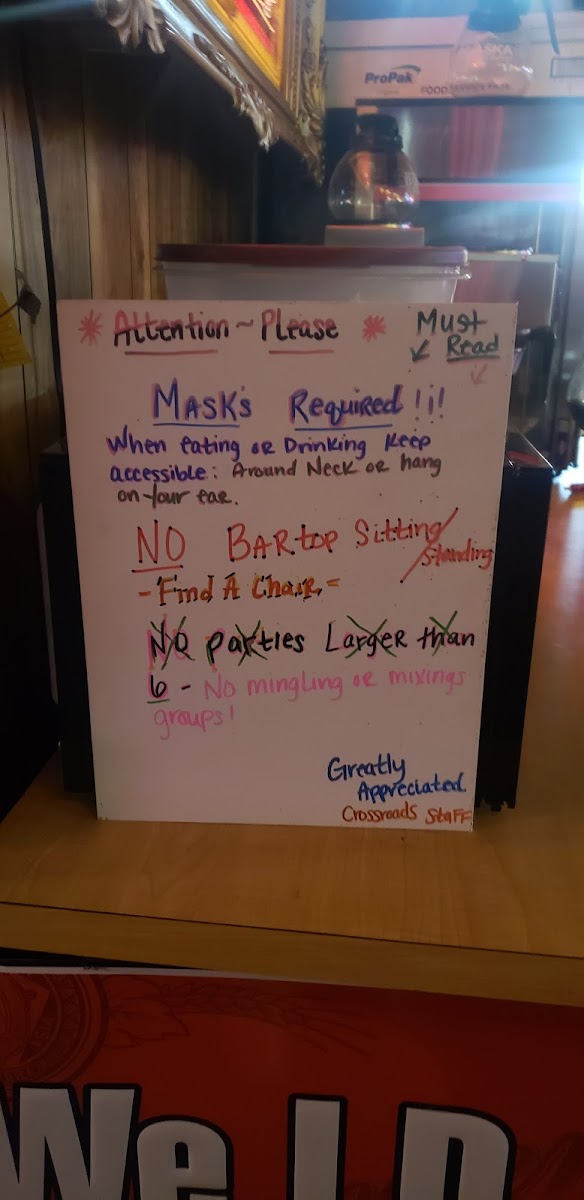 ProPak
FOOD SERVICE FILM
* Attention ~ Please *
Must
Read
Masks Required !¡!
When eating or Drinking keep
accessible: Around Neck or hang
on your ear.
NO BARtop Sitting/
Standing
- Find A Chair. =
NO parties Larger than
6 - No mingling or mixings
groups!
Greatly
Appreciated
Crossroads Staff
We I.D